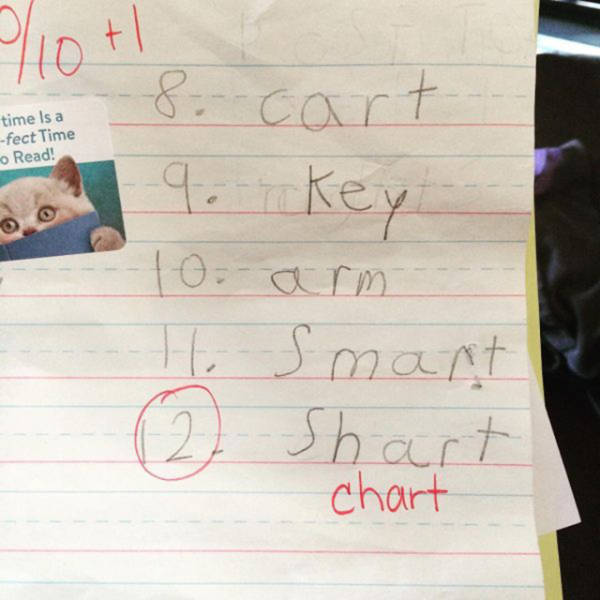 0/10 +1
8. cart
time Is a
-fect Time
o Read!
9. key
10. arm
11. Smart
12. Shart
chart